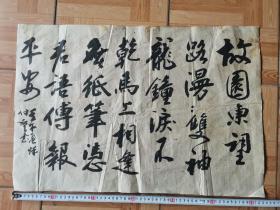 故園東望
路漫々雙袖
龍鍾淚不
乾馬上相逢
無紙筆憑
君語傳報
平安